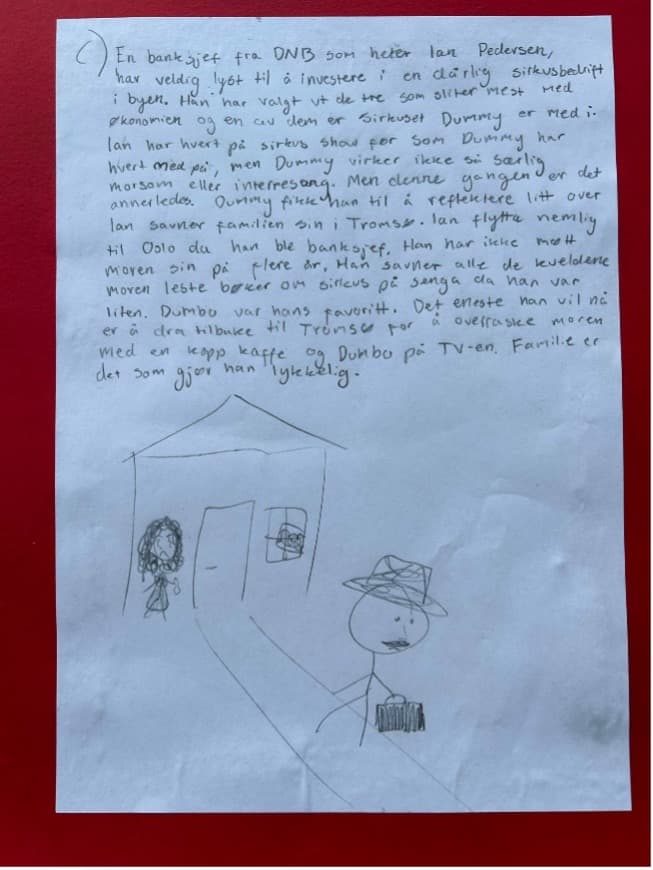 C) En banksjef fra DNB som heter Ian Pedersen,
har veldig lyst til å investere i en dårlig sirkusbedrift
i byen. Han har valgt ut de tre som sliter mest med
økonomien og en av dem er sirkuset Dummy er med i.
Ian har hvert på sirkus show før som Dummy har
hvert med på, men Dummy virker ikke så særlig
morsom eller interresang. Men denne gangen er det
annerledes. Dummy fikk han til å reflektere litt over
Ian savner familien sin i Tromsø. Ian flytta nemlig
til Oslo da han ble banksjef. Han har ikke møtt
moren sin på flere år. Han savner alle de kveldene
moren leste bøker om sirkus på senga da han var
liten. Dumbo var hans favoritt. Det eneste han vil nå
er å dra tilbake til Tromsø for å overraske moren
med en kopp kaffe og Dumbo på TV-en. Familie er
det som gjør han lykkelig.